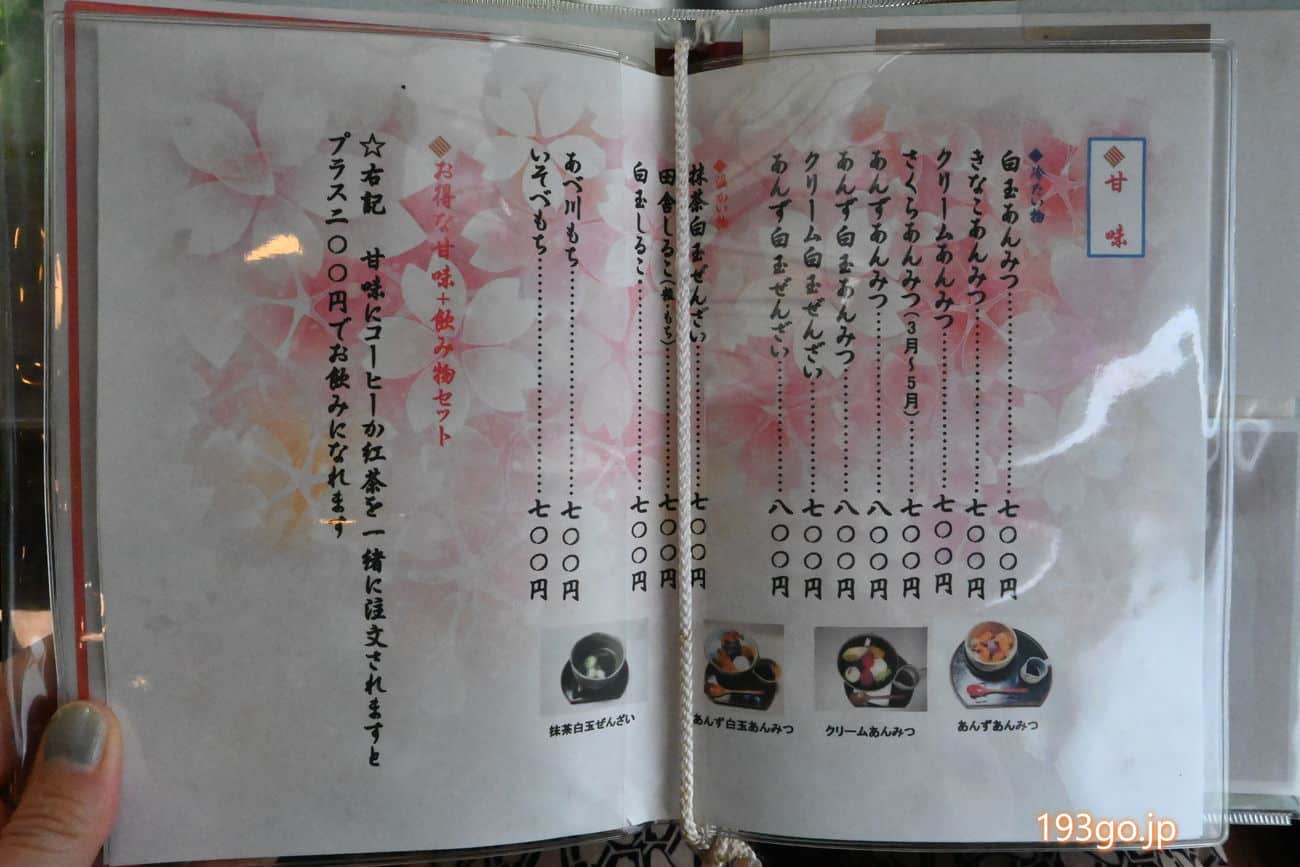 甘味
◆冷たい物
白玉あんみつ……………………七〇〇円
きなこあんみつ……………………七〇〇円
クリームあんみつ……………………七〇〇円
さくらあんみつ(3月〜5月)……………七〇〇円
あんずあんみつ……………………八〇〇円
あんず白玉あんみつ……………………八〇〇円
クリーム白玉ぜんざい……………………七〇〇円
あんず白玉ぜんざい……………………八〇〇円
抹茶白玉ぜんざい……………………七〇〇円
田舎しるこ(粒・もち)……………………七〇〇円
白玉しるこ……………………七〇〇円
あべ川もち……………………七〇〇円
いそべもち……………………七〇〇円
お得な甘味+飲み物セット
☆右記 甘味にコーヒーか紅茶を一緒に注文されますと
プラス二〇〇円でお飲みになれます
あんずあんみつ
クリームあんみつ
あんず白玉あんみつ
抹茶白玉ぜんざい
193go.jp